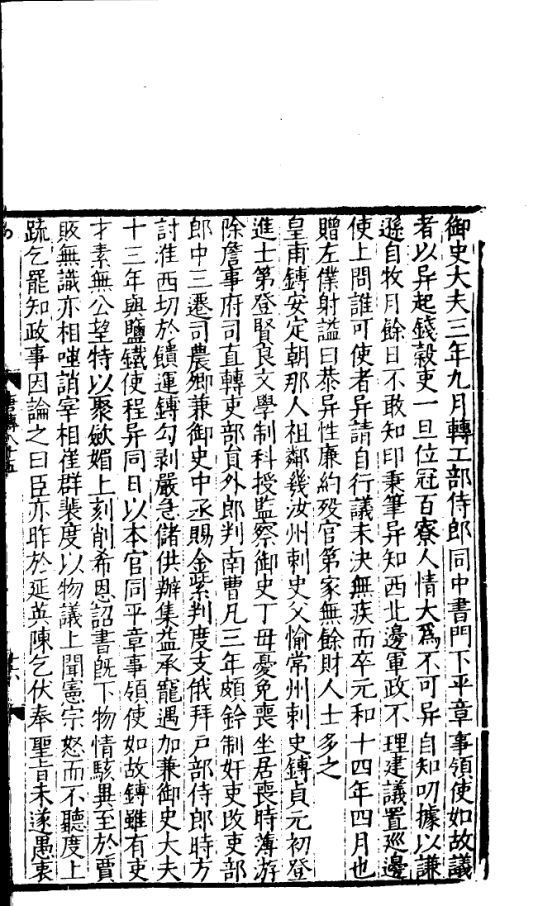 御史大夫三年九月轉工部侍郎同中書門下平章事領使如故議
者以异起錢穀吏一旦位冠百寮人情大爲不可异自知叨據以謙
遜自牧月餘日不敢知印秉筆异知西北邊軍政不理建議置巡邊
使上問誰可使者异請自行議未決無疾而卒元和十四年四月也
贈左僕射謚曰恭异性廉約歿官第家無餘財人士多之
皇甫鏄安定朝那人祖鄰幾汝州刺史父愉常州刺史鏄貞元初登
進士第登賢良文學制科授監察御史丁母憂免喪坐居喪時薄游
除詹事府司直轉吏部員外郎判南曹凡三年頗鈐制奸吏改吏部
郎中三遷司農卿兼御史中丞賜金紫判度支俄拜戶部侍郎時方
討淮西切於饋運鏄勾剥嚴急儲供辦集益承寵遇加兼御史大夫
十三年與鹽鐵使程异同日以本官同平章事領使如故鏄雖有吏
才素無公望特以聚斂媚上刻削希恩詔書既下物情駭異至於賈
販無識亦相嗤誚宰相崔群裴度以物議上聞憲宗怒而不聽度上
疏乞罷知政事因論之曰臣亦昨於延英陳乞伏奉聖旨未遂愚衷